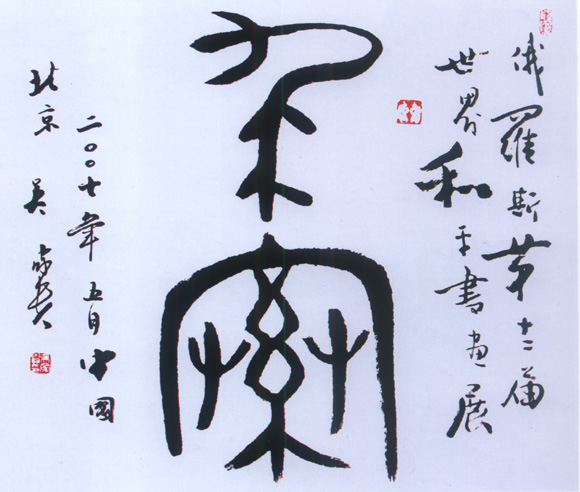 俄羅斯第十二届
世界和平書畫展
求索
二〇〇七年五月中國
北京 吴